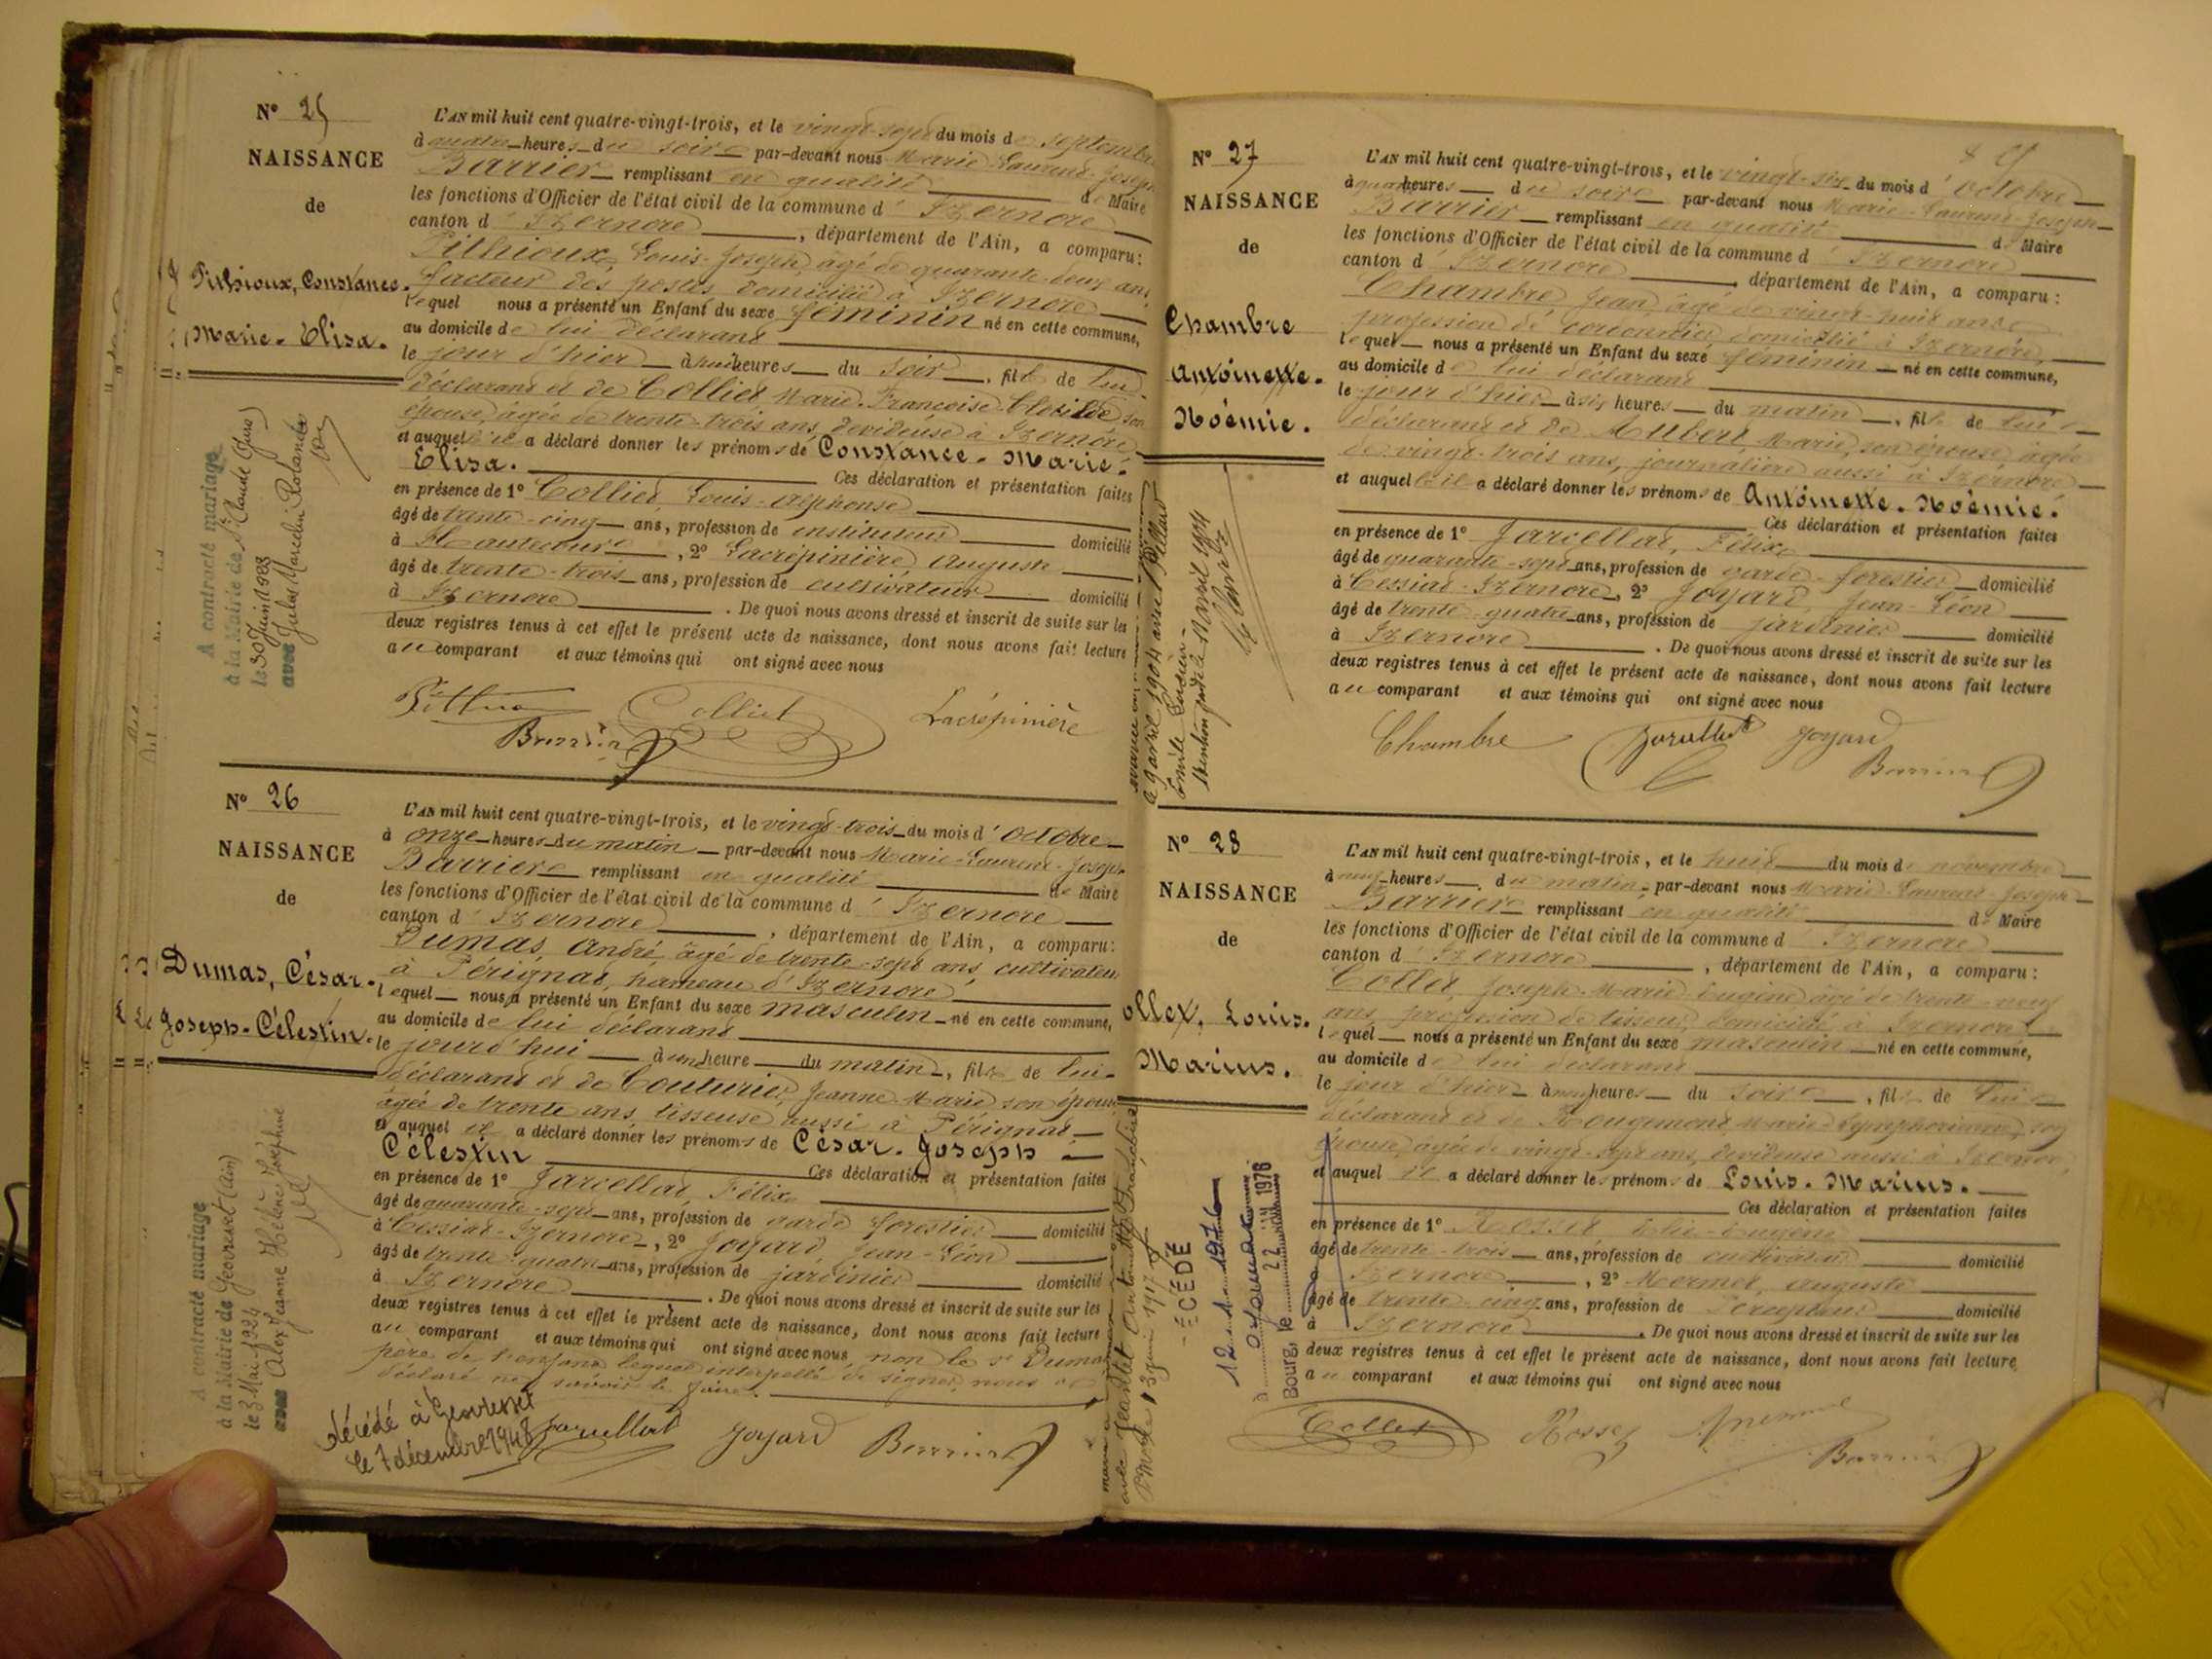 N° 25
NAISSANCE
de
Pithioux, Constance.
Marie-Elisa.
A contracté mariage
à la Mairie de St Claude (Jura)
le 30 Juin 1923
avec Jules Marcelin Rolandez
L'AN mil huit cent quatre-vingt-trois, et le vingt-sept du mois de septembre
à quatre heures du soir par-devant nous Marie-Laurent-Joseph
Barrier remplissant en qualité de Maire
les fonctions d'Officier de l'état civil de la commune d'Izernore
canton d'Izernore, département de l'Ain, a comparu:
Pithioux, Louis-Joseph, âgé de quarante-deux ans,
facteur des postes domicilié à Izernore
lequel nous a présenté un Enfant du sexe féminin né en cette commune,
au domicile de lui déclarant
le jour d'hier à huit heures du soir, fille de lui
déclarant et de Collet Marie-Françoise-Clotilde son
épouse, âgée de trente-trois ans, devideuse à Izernore
et auquel il a déclaré donner les prénoms de Constance-Marie-
Elisa. Ces déclaration et présentation faites
en présence de 1° Collet, Louis-Alphonse
âgé de trente-cinq ans, profession de instituteur domicilié
à Hautecour, 2° Lacrépinière Auguste
âgé de trente-trois ans, profession de cultivateur domicilié
à Izernore. De quoi nous avons dressé et inscrit de suite sur les
deux registres tenus à cet effet le présent acte de naissance, dont nous avons fait lecture
au comparant et aux témoins qui ont signé avec nous
Collet Lacrépinière
Barrier
N° 26
NAISSANCE
de
Dumas, César-
Joseph-Célestin.
A contracté mariage
à la Mairie de Geovresset (Ain)
le 3 Mai 1924
avec Alex Jeanne Hélène Joséphine
L'AN mil huit cent quatre-vingt-trois, et le vingt-trois du mois d'octobre
à onze heures du matin par-devant nous Marie-Laurent-Joseph
Barrier remplissant en qualité de Maire
les fonctions d'Officier de l'état civil de la commune d'Izernore
canton d'Izernore, département de l'Ain, a comparu:
Dumas, André, âgé de trente-sept ans, cultivateur
à Pérignat, hameau d'Izernore
lequel nous a présenté un Enfant du sexe masculin né en cette commune,
au domicile de lui déclarant
le jourd'hui à une heure du matin, fils de lui
déclarant et de Couturier, Jeanne-Marie son épouse
âgée de trente ans, tisseuse aussi à Pérignat
et auquel il a déclaré donner les prénoms de César-Joseph-
Célestin Ces déclaration et présentation faites
en présence de 1° Jarcellat, Félix
âgé de quarante-sept ans, profession de garde forestier domicilié
à Cessiat-Izernore, 2° Joyard, Jean-Léon
âgé de trente-quatre ans, profession de jardinier domicilié
à Izernore. De quoi nous avons dressé et inscrit de suite sur les
deux registres tenus à cet effet le présent acte de naissance, dont nous avons fait lecture
au comparant et aux témoins qui ont signé avec nous, non le sr Dumas
père de l'enfant lequel interpellé de signer, nous a
déclaré ne savoir le faire.
décédé à Geovresset
le 7 décembre 1948
Jarcellat Joyard Barrier
N° 27
NAISSANCE
de
Chambre
Antoinette-
Noémie.
le 9 avril 1904 avec
L'AN mil huit cent quatre-vingt-trois, et le vingt-six du mois d'octobre
à quatre heures du soir par-devant nous Marie-Laurent-Joseph
Barrier remplissant en qualité de Maire
les fonctions d'Officier de l'état civil de la commune d'Izernore
canton d'Izernore, département de l'Ain, a comparu:
Chambre Jean, âgé de vingt-huit ans
profession de domicilié à Izernore
lequel nous a présenté un Enfant du sexe féminin né en cette commune,
au domicile de lui déclarant
le jour d'hier à six heures du matin, fille de lui
déclarant et de Aubert Marie, son épouse, âgée
de vingt-trois ans, journalière aussi à Izernore
et auquel il a déclaré donner les prénoms de Antoinette-Noémie.
Ces déclaration et présentation faites
en présence de 1° Jarcellat, Félix
âgé de quarante-sept ans, profession de garde-forestier domicilié
à Cessiat-Izernore, 2° Joyard, Jean-Léon
âgé de trente-quatre ans, profession de jardinier domicilié
à Izernore. De quoi nous avons dressé et inscrit de suite sur les
deux registres tenus à cet effet le présent acte de naissance, dont nous avons fait lecture
au comparant et aux témoins qui ont signé avec nous
Chambre Jarcellat Joyard
Barrier
N° 28
NAISSANCE
de
ollet, Louis-
Marius.
DÉCÉDÉ
12.1.1976
à Oyonnax
Bourg, le 22 JAN 1976
L'AN mil huit cent quatre-vingt-trois, et le huit du mois de novembre
à neuf heures du matin par-devant nous Marie-Laurent-Joseph
Barrier remplissant en qualité de Maire
les fonctions d'Officier de l'état civil de la commune d'Izernore
canton d'Izernore, département de l'Ain, a comparu:
Collet, Joseph-Marie-Eugène âgé de trente-neuf
ans, profession de tisseur, domicilié à Izernore
lequel nous a présenté un Enfant du sexe masculin né en cette commune,
au domicile de lui déclarant
le jour d'hier à heures du soir, fils de lui
déclarant et de Rougemont Marie-Symphorienne, son
épouse, âgée de vingt-sept ans, devideuse aussi à Izernore,
et auquel il a déclaré donner les prénoms de Louis-Marius.
Ces déclaration et présentation faites
en présence de 1° Rosset Eugène
âgé de trente-trois ans, profession de cultivateur domicilié
à Izernore, 2° Mermet, Auguste
âgé de trente-cinq ans, profession de Percepteur domicilié
à Izernore. De quoi nous avons dressé et inscrit de suite sur les
deux registres tenus à cet effet le présent acte de naissance, dont nous avons fait lecture
au comparant et aux témoins qui ont signé avec nous
Collet Rosset
Barrier